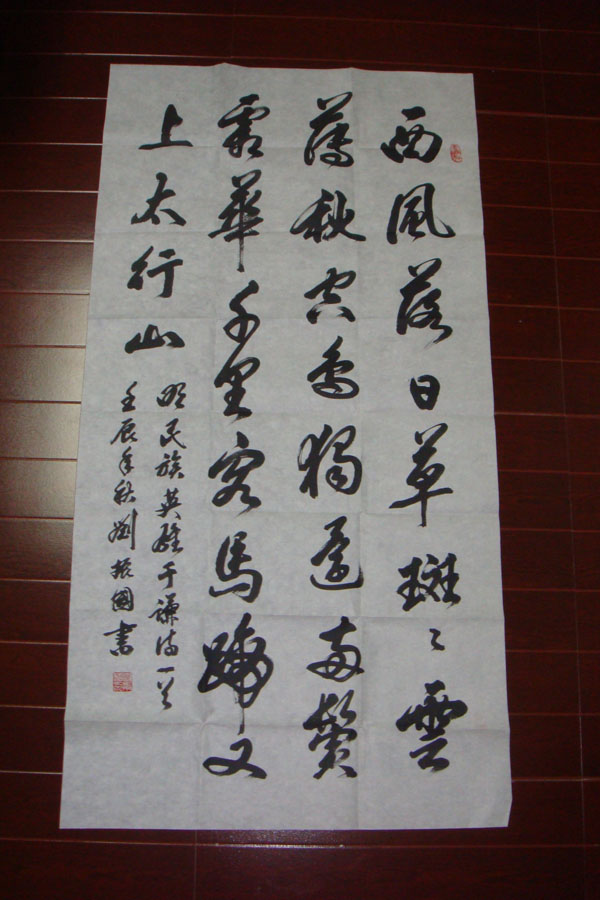 西風落日草斑々雲
薄秋空鳥獨還兩鬢
霜華千里客馬蹄又
上太行山
明民族英雄于謙詩一首
壬辰年秋劉振國書